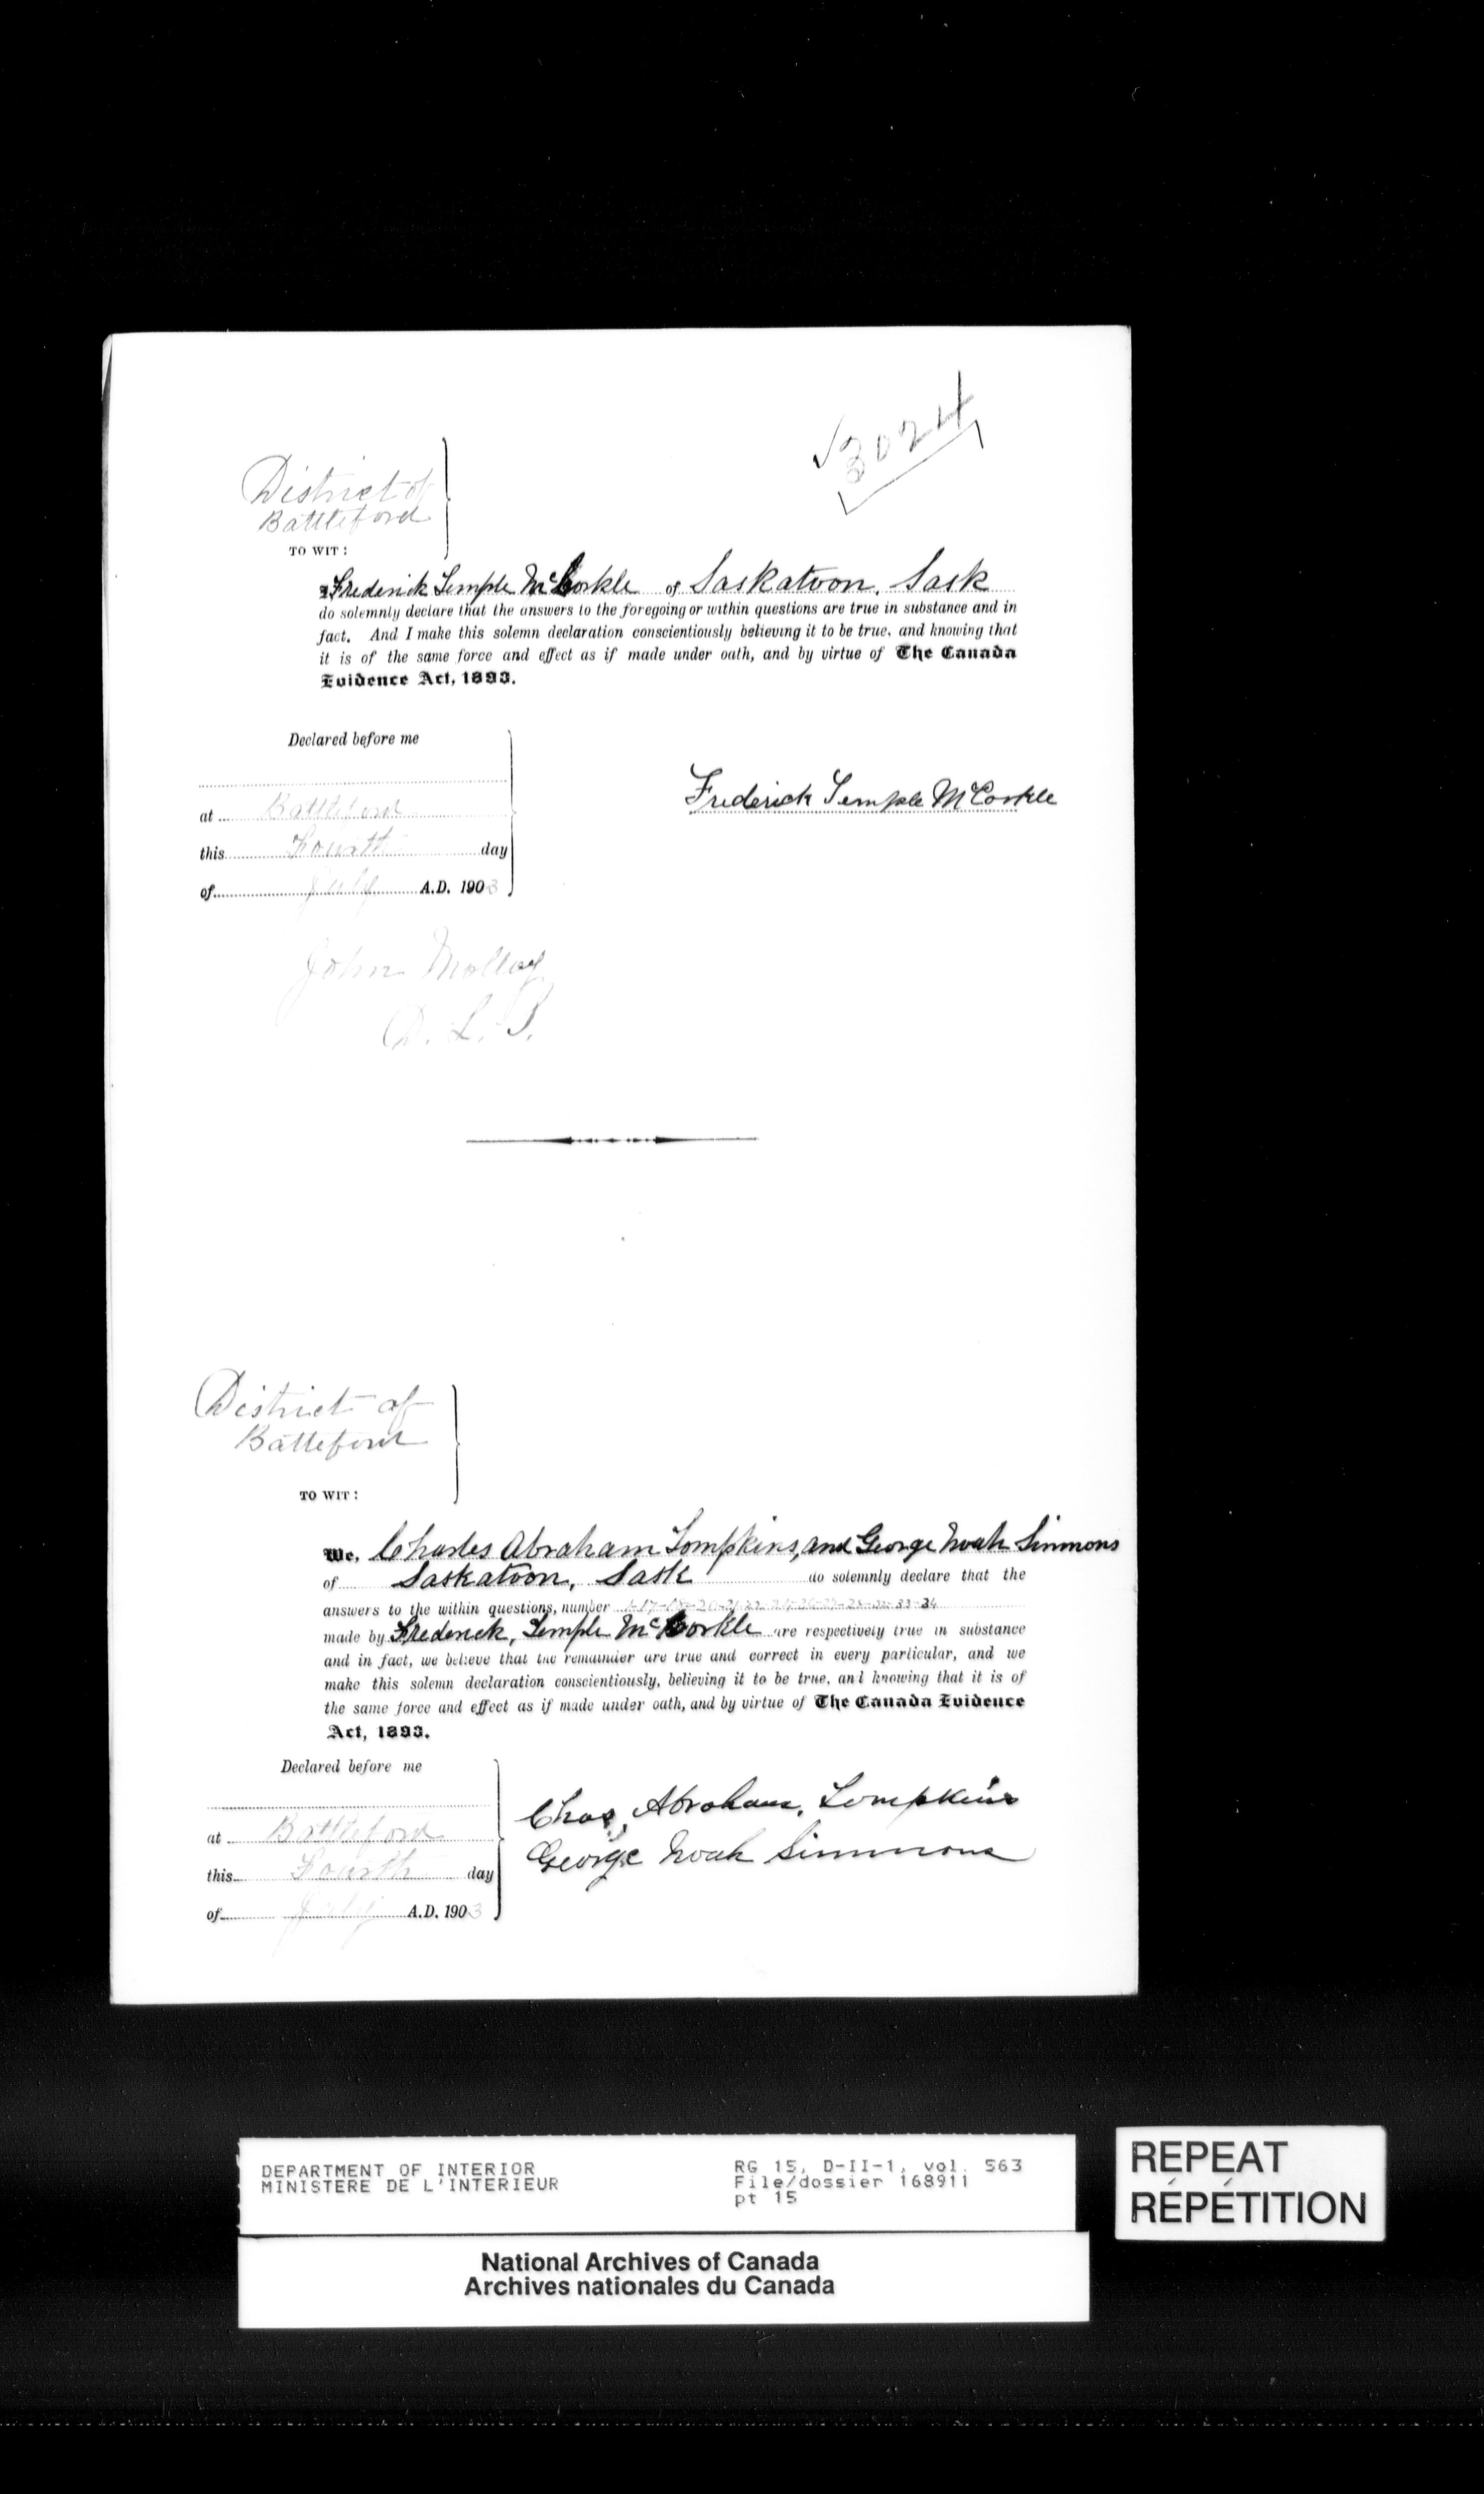 3024
District of
Battleford
TO WIT:
I Frederick Temple McCorkle of Saskatoon, Sask
do solemnly declare that the answers to the foregoing or within questions are true in substance and in
fact. And I make this solemn declaration conscientiously believing it to be true, and knowing that
it is of the same force and effect as if made under oath, and by virtue of The Canada
Evidence Act, 1893.
Declared before me
at Battleford
this Fourth day
of July A.D. 1903
Frederick Temple McCorkle
John Molloy
D. L. S.
District of
Battleford
TO WIT:
We, Charles Abraham Tompkins, and George Noah Simmons
of Saskatoon, Sask do solemnly declare that the
answers to the within questions, number 33-34
made by Frederick, Temple McCorkle are respectively true in substance
and in fact, we believe that the remainder are true and correct in every particular, and we
make this solemn declaration conscientiously, believing it to be true, and knowing that it is of
the same force and effect as if made under oath, and by virtue of The Canada Evidence
Act, 1893.
Declared before me
at Battleford
this Fourth day
of July A.D. 1903
Chas, Abraham, Tompkins
George Noah Simmons
DEPARTMENT OF INTERIOR
MINISTERE DE L'INTERIEUR
RG 15, D-II-1, vol. 563
File/dossier 168911
pt 15
National Archives of Canada
Archives nationales du Canada
REPEAT
RÉPÉTITION